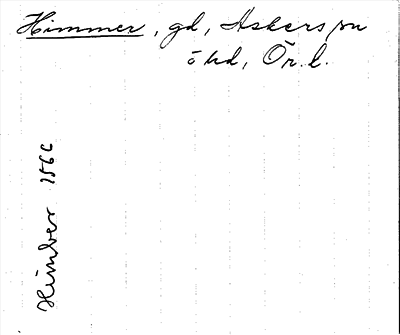 Himmer, gd, Askers sn
ö hd, Ör. l.
Himber 1566